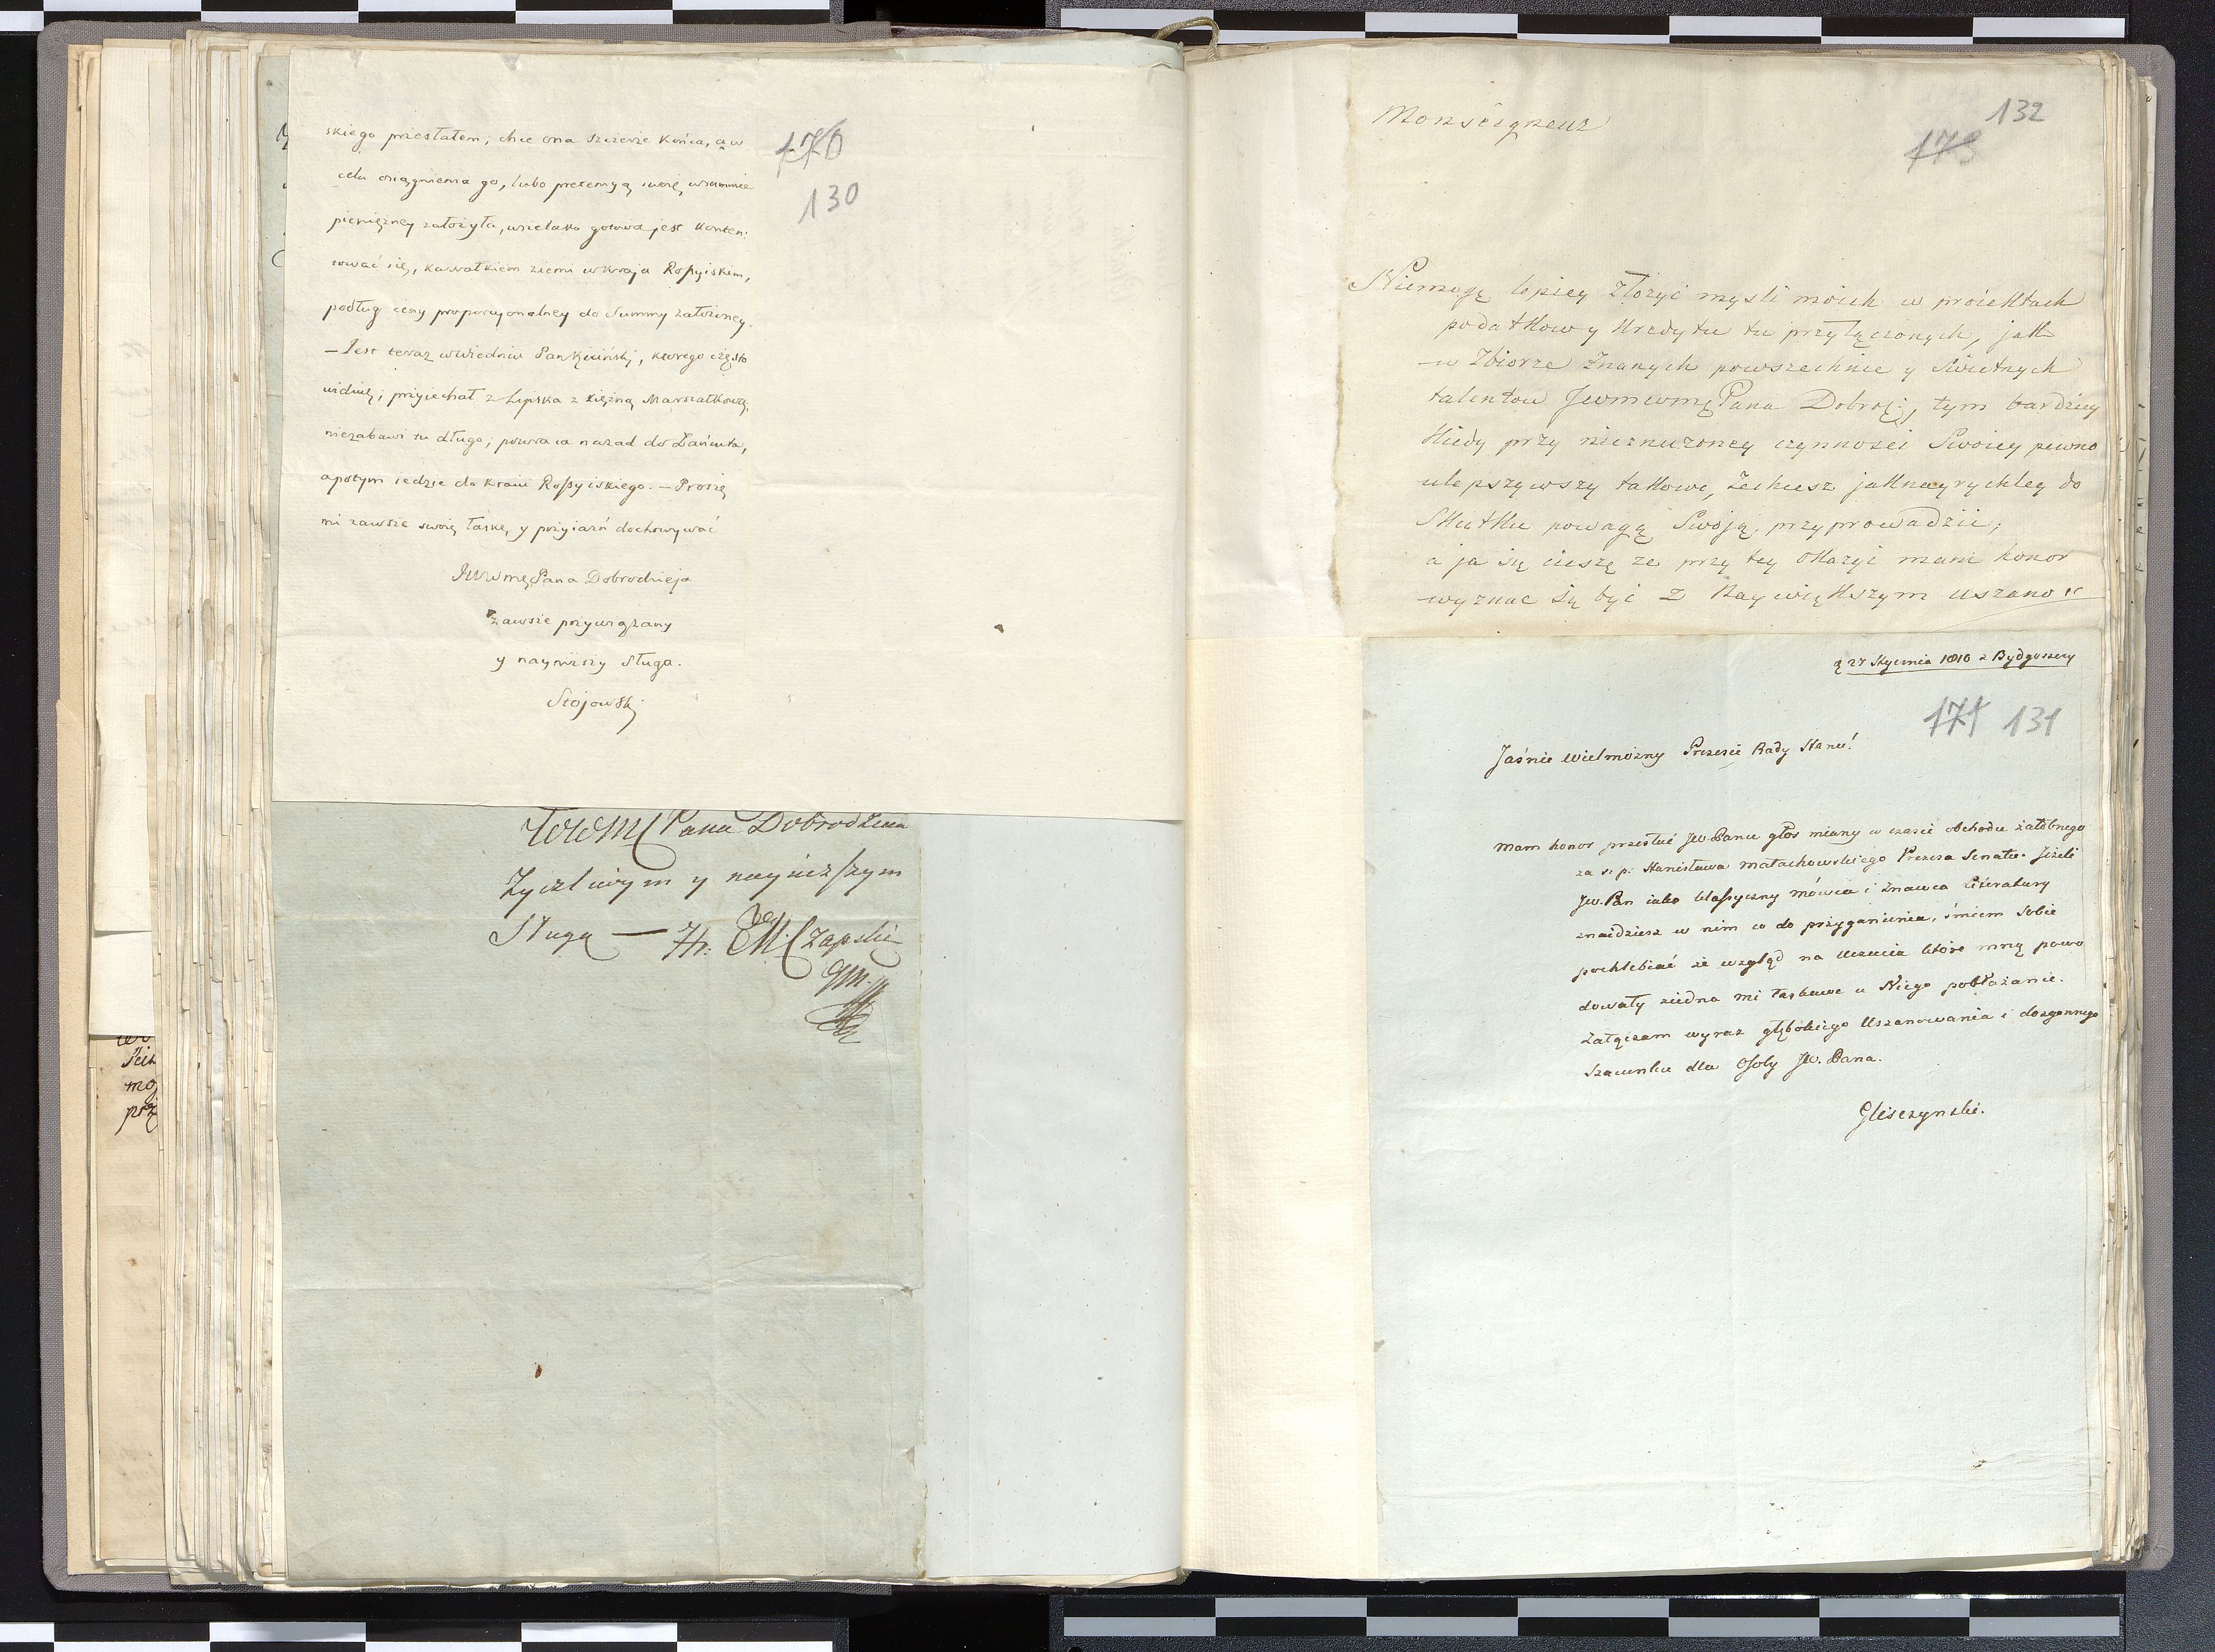 skiego przestałem; chce ona szczerze końca, a w
celu osiągnienia go, lubo pretensyą swoię w summie
pieniężney założyła, wszelako gotowa jest konten:
tować się, kawałkiem ziemi w kraju Rossyiskim,
podług ceny proporcyonalney do Summy założoney.
— Jest teraz w Wiedniu Pan Kiciński, którego często
widuię; przyiechał z Lipska z Xiężną Marszałkową,
niezabawi tu długo; powraca nazad do Łańcuta,
a potym iedzie do kraiu Rossyiskiego. — Proszę
mi zawsze swoię łaskę, y przyiaźń dochowywać
JWWmę Pana Dobrodzieja
zawsze przywiązany
y nayniższy Sługa.
Stojowski
170
130
JWWM Pana Dobrodzieia
Życzliwym y nayniższym
Sługą — Hr: Czapski
Monseigneur
132
173
Niemogę lepiey złożyć mysli moich w proiektach
podatkow y Kredytu tu przyłączonych, jak
w Zbiorze Znanych powszechnie y Swietnych
talentow JWWmę Pana Dobroź:, tym bardziey
kiedy przy nieznużoney czynnosci Swoiey pewno
ulepszywszy takowe, Zechcesz jaknayrychley do
Skutku powagą Swoją przyprowadzić;
a ja się cieszę że przy tey Okazyi mam honor
wyznac się być Z Naywiększym uszano"
d 27 Stycznia 1810 z Bydgoszczy
171 131
Jaśnie Wielmożny Prezesie Rady Stanu!
Mam honor przesłać JW. Panu głos miany w czasie obchodu żałobnego
za ś. p. Stanisława Małachowskiego Prezesa Senatu. Jeżeli
JW. Pan iako klassyczny mówca i znawca Literatury
znaidziesz w nim co do przyganienia, śmiem sobie
pochlebiać że wzgląd na uczucia które mną powo
dowały ziedna mi łaskawe u Niego pobłażanie.
Załączam wyraz głębokiego Uszanowania i dozgonnego
Szacunku dla Osoby JW. Pana.
Gliszczynski.